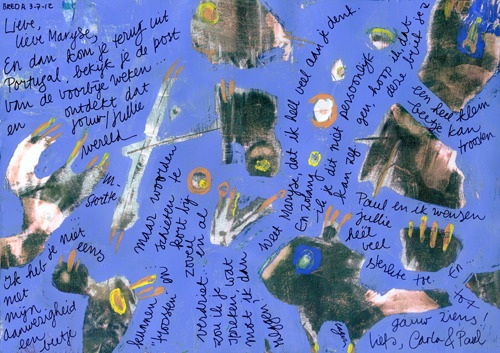 BREDA 3-7-12
Lieve,
lieve Maryse,
En dan kom je terug uit
Portugal, bekijk je de post
van de voorbije weken...
en ontdekt dat
jouw/jullie
wereld
in
Ik heb je niet
eens
met
mijn
aanwezigheid
een
beetje
kunnen
troosten en
maar woorden
schieten te
kort bij
zoveel
verdriet... en al
zou ik je
spreken, wat
moet ik dan
zeggen?
Weet Maryse, dat ik heel veel aan je denk.
En zolang
ik je dit niet persoonlijk
kan zeggen, hoop ik dat
deze brief je
een heel klein
beetje kan
troosten
Paul en ik wensen
jullie
heel
veel
sterkte toe.
En...
tot
gauw ziens!
liefs, Carla & Paul